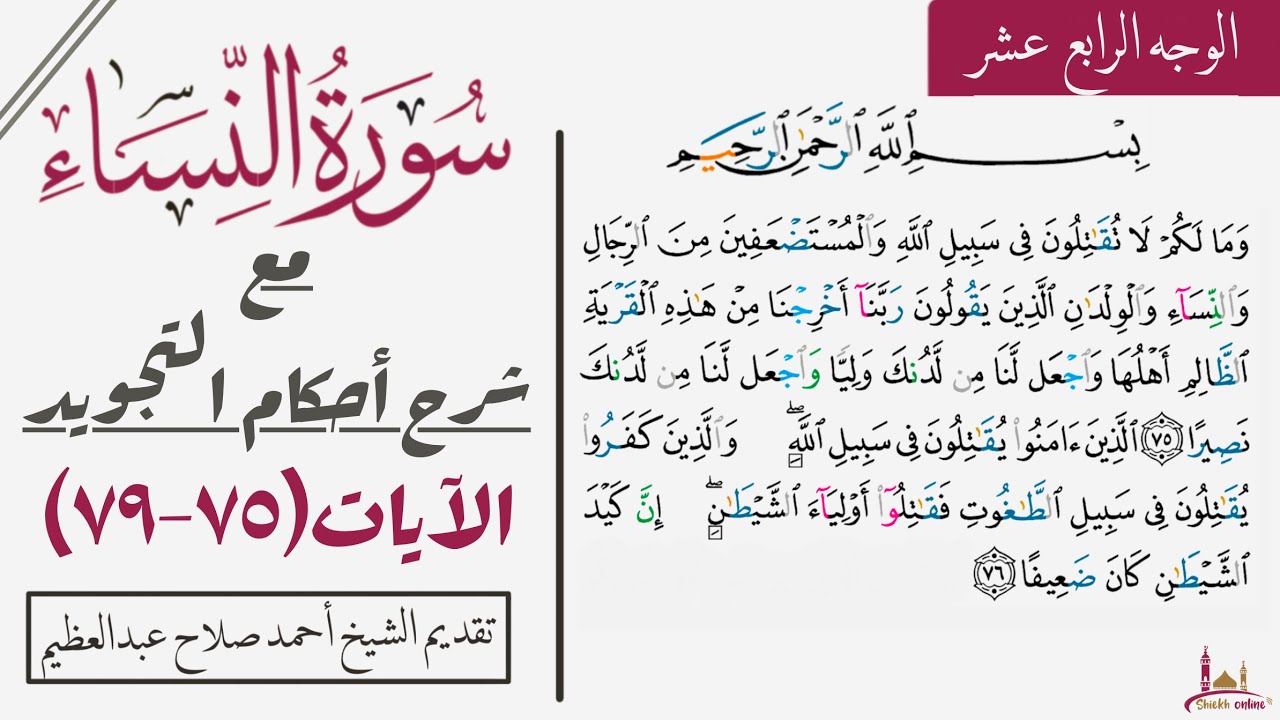 الوجه الرابع عشر
سُورَةُ النِّسَاءِ
مع
شرح أحكام التجويد
الآيات (٧٥-٧٩)
تقديم الشيخ أحمد صلاح عبدالعظيم
بِسْمِ ٱللَّهِ ٱلرَّحْمَٰنِ ٱلرَّحِيمِ
وَمَا لَكُمْ لَا تُقَٰتِلُونَ فِى سَبِيلِ ٱللَّهِ وَٱلْمُسْتَضْعَفِينَ مِنَ ٱلرِّجَالِ
وَٱلنِّسَآءِ وَٱلْوِلْدَٰنِ ٱلَّذِينَ يَقُولُونَ رَبَّنَآ أَخْرِجْنَا مِنْ هَٰذِهِ ٱلْقَرْيَةِ
ٱلظَّالِمِ أَهْلُهَا وَٱجْعَل لَّنَا مِن لَّدُنكَ وَلِيًّا وَٱجْعَل لَّنَا مِن لَّدُنكَ
نَصِيرًا ٧٥ ٱلَّذِينَ ءَامَنُوا۟ يُقَٰتِلُونَ فِى سَبِيلِ ٱللَّهِ ۖ وَٱلَّذِينَ كَفَرُوا۟
يُقَٰتِلُونَ فِى سَبِيلِ ٱلطَّٰغُوتِ فَقَٰتِلُوٓا۟ أَوْلِيَآءَ ٱلشَّيْطَٰنِ ۖ إِنَّ كَيْدَ
ٱلشَّيْطَٰنِ كَانَ ضَعِيفًا ٧٦
Shiekh online